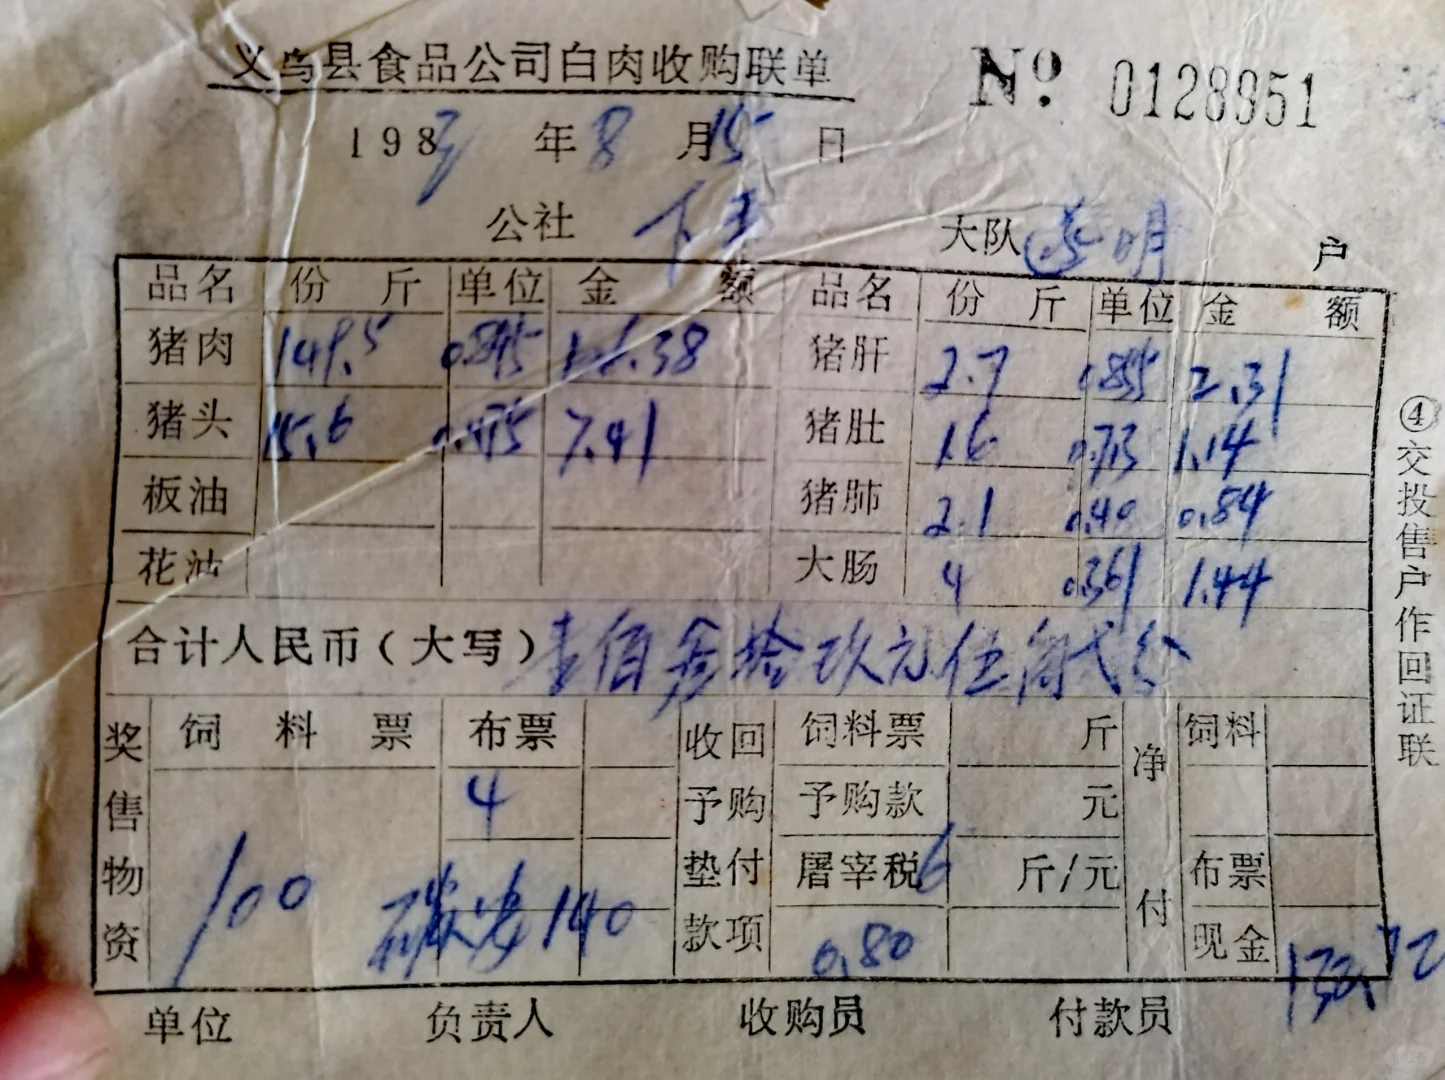 义乌县食品公司白肉收购联单
№ 0128951
1983年8月15日
公社 下王 大队 造明 户
品名 份斤 单位 金额 品名 份斤 单位 金额
猪肉 149.5 0.845 126.38 猪肝 2.7 0.855 2.31
猪头 15.6 0.475 7.41 猪肚 1.6 0.713 1.14
板油 猪肺 2.1 0.40 0.84
花油 大肠 4 0.361 1.44
合计人民币(大写)壹佰叁拾玖元伍角弍分
奖售物资 饲料票 布票 收回予购垫付款项 饲料票 斤 净付 饲料
4 予购款 元
100 碳安140 屠宰税 6 斤/元 布票
0.80 现金 132.72
单位 负责人 收购员 付款员
④交投售户作回证联